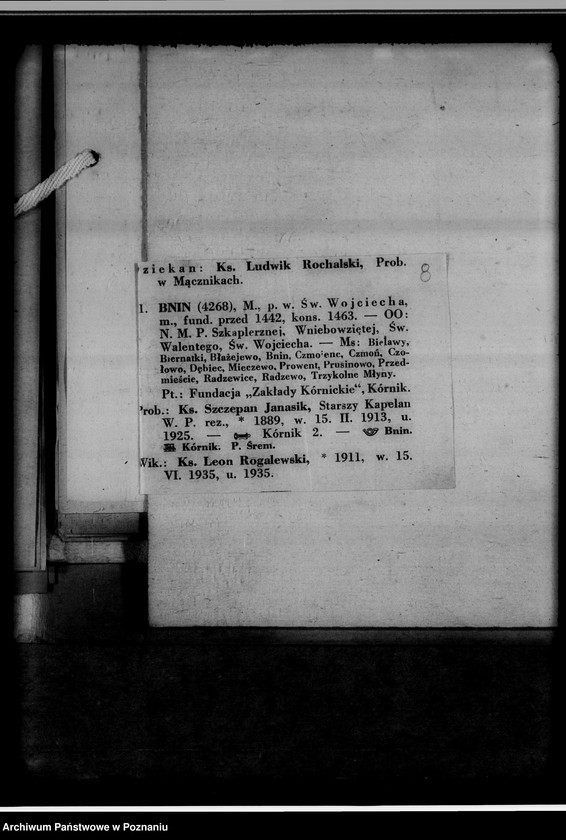 8
ziekan: Ks. Ludwik Rochalski, Prob.
w Mącznikach.
1. BNIN (4268), M., p. w. Św. Wojciecha,
m., fund. przed 1442, kons. 1463. — OO:
N. M. P. Szkaplerznej, Wniebowziętej, Św.
Walentego, Św. Wojciecha. — Ms: Bielawy,
Biernatki, Błażejewo, Bnin, Czmoniec, Czmoń, Czo-
łowo, Dębiec, Mieczewo, Prowent, Prusinowo, Przed-
mieście, Radzewice, Radzewo, Trzykolne Młyny.
Pt.: Fundacja „Zakłady Kórnickie“, Kórnik.
Prob.: Ks. Szczepan Janasik, Starszy Kapelan
W. P. rez., * 1889, w. 15. II. 1913, u.
1925. — Kórnik 2. — Bnin.
Kórnik. P. Śrem.
Wik.: Ks. Leon Rogalewski, * 1911, w. 15.
VI. 1935, u. 1935.
Archiwum Państwowe w Poznaniu